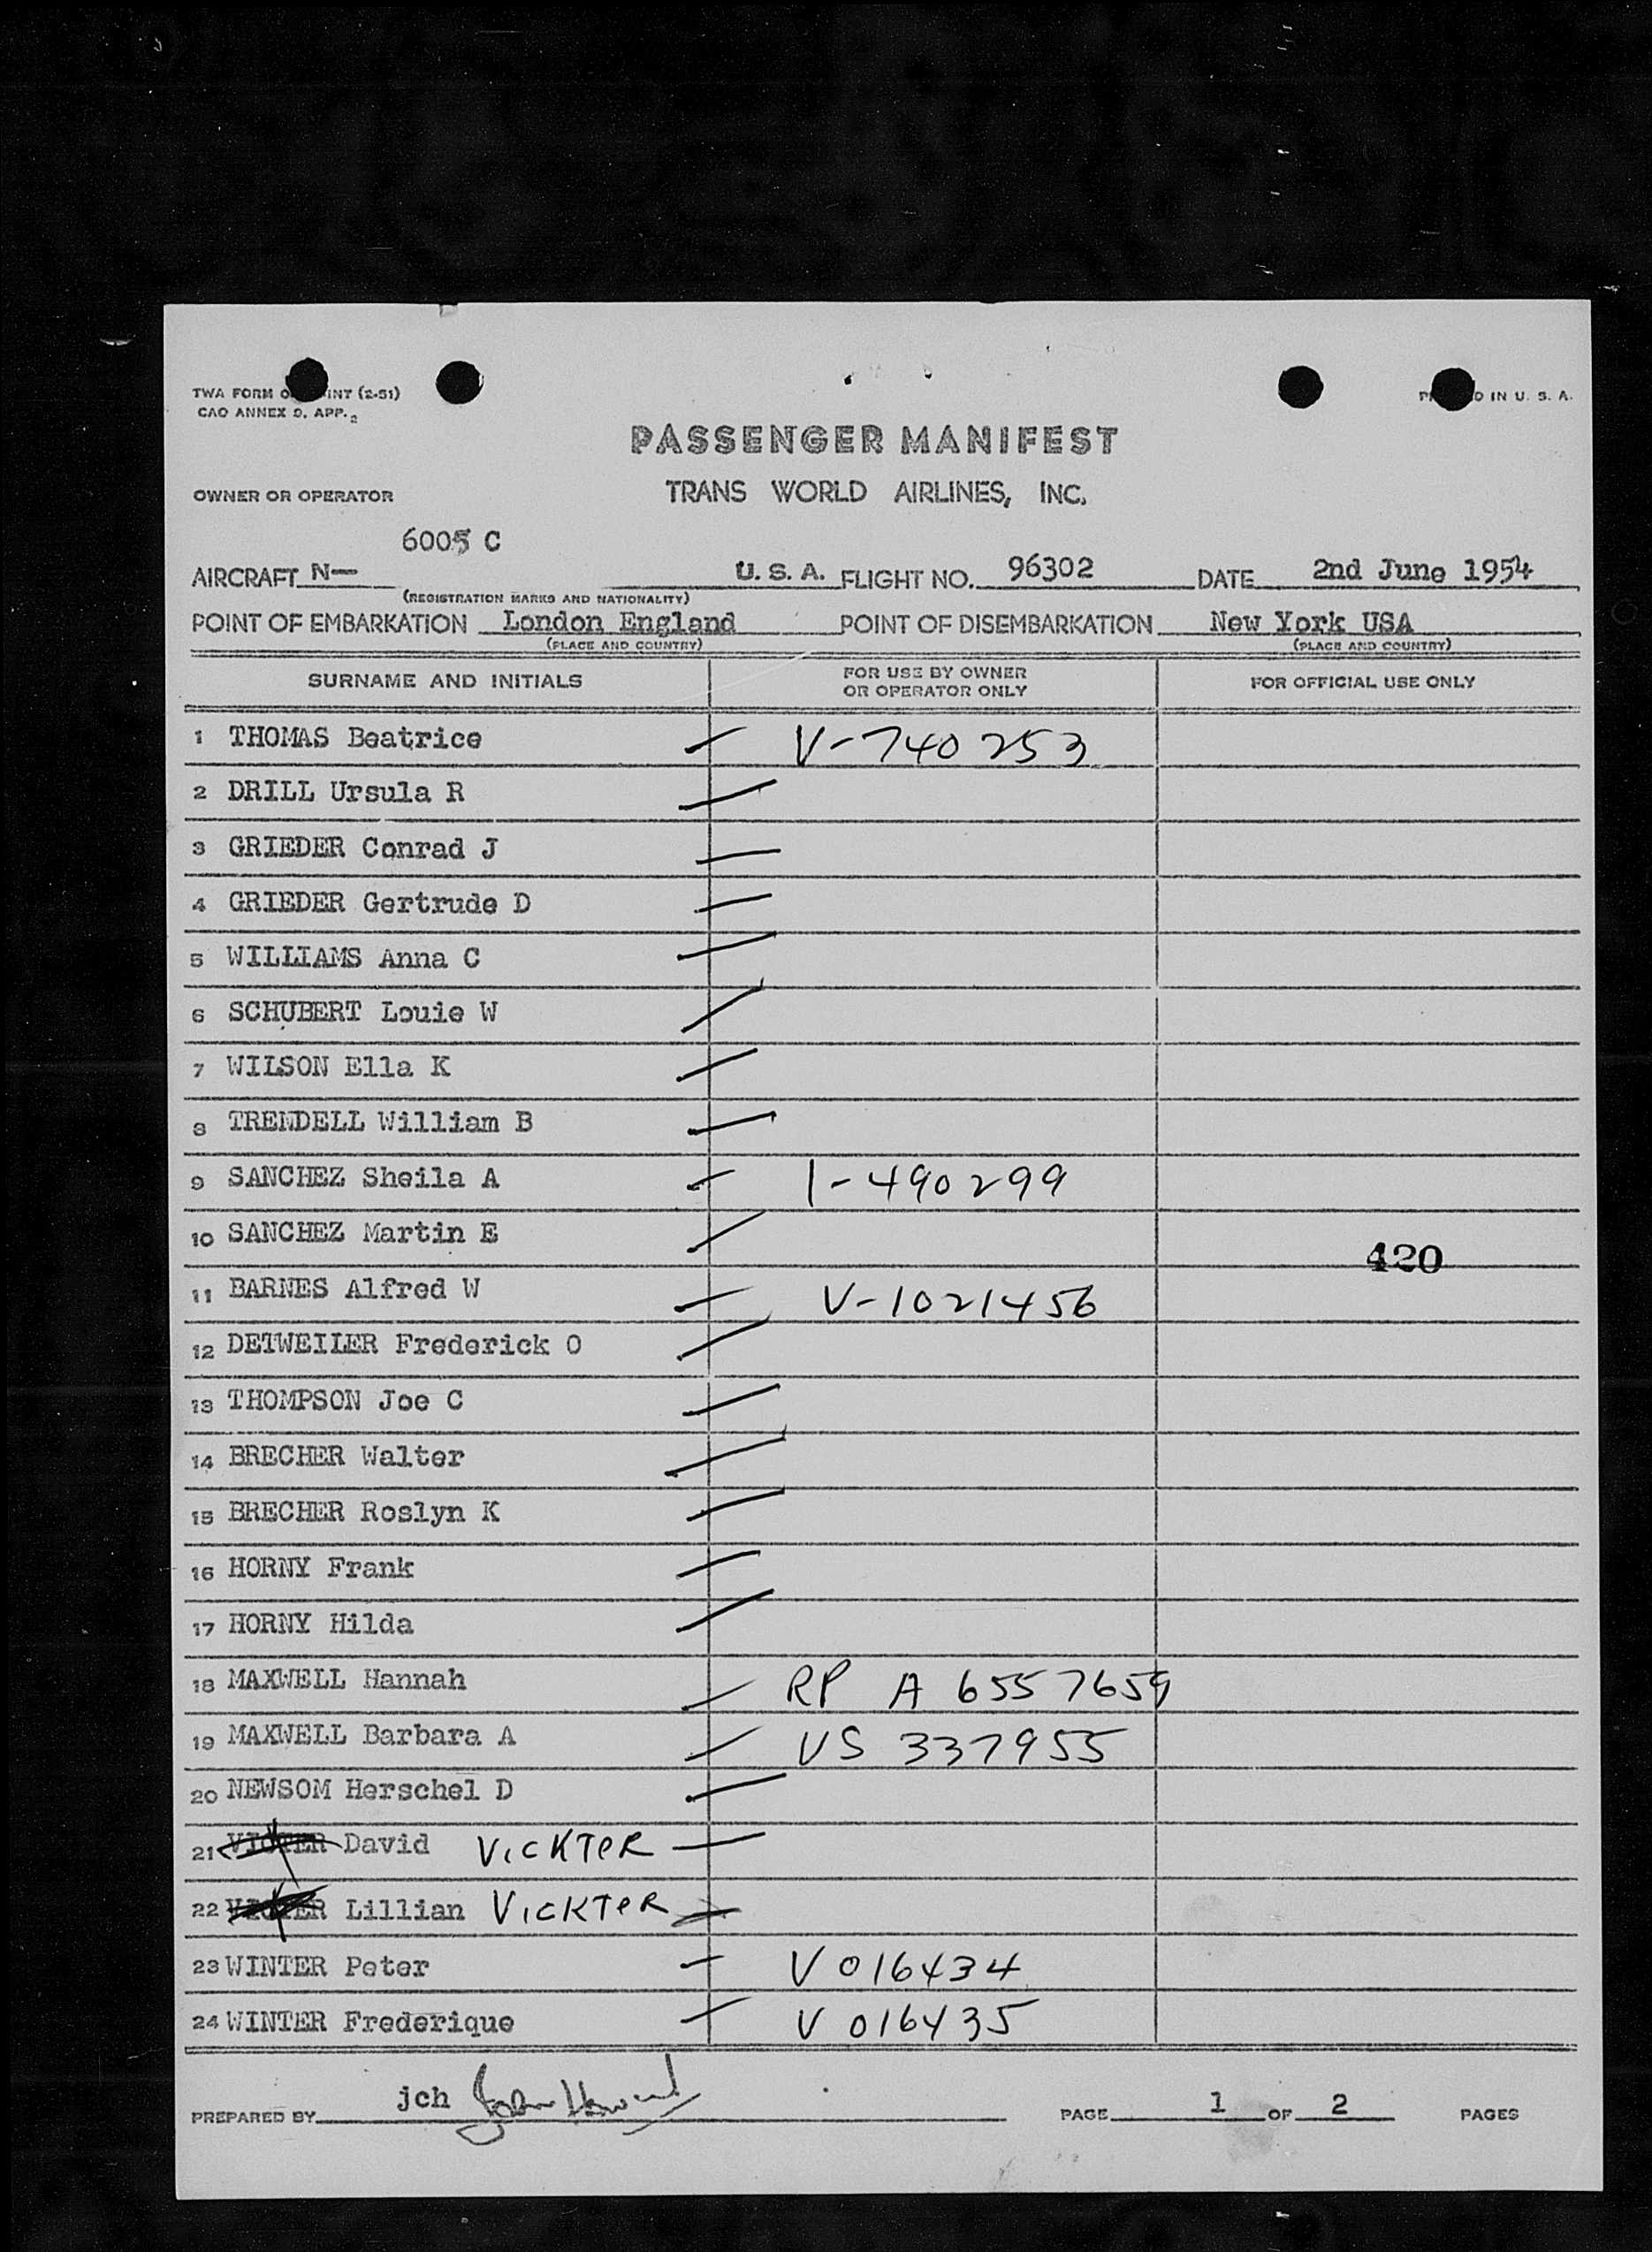 TWA FORM O INT (2-51)
CAO ANNEX 9, APP. 2
D IN U. S. A.
PASSENGER MANIFEST
OWNER OR OPERATOR
TRANS WORLD AIRLINES, INC.
6005 C
AIRCRAFT N— U. S. A. FLIGHT NO. 96302 DATE 2nd June 1954
(REGISTRATION MARKS AND NATIONALITY)
POINT OF EMBARKATION London England POINT OF DISEMBARKATION New York USA
(PLACE AND COUNTRY) (PLACE AND COUNTRY)
SURNAME AND INITIALS
FOR USE BY OWNER
OR OPERATOR ONLY
FOR OFFICIAL USE ONLY
1 THOMAS Beatrice V-740253
2 DRILL Ursula R
3 GRIEDER Conrad J
4 GRIEDER Gertrude D
5 WILLIAMS Anna C
6 SCHUBERT Louie W
7 WILSON Ella K
8 TRENDELL William B
9 SANCHEZ Sheila A 1-490299
10 SANCHEZ Martin E
420
11 BARNES Alfred W V-1021456
12 DETWEILER Frederick O
13 THOMPSON Joe C
14 BRECHER Walter
15 BRECHER Roslyn K
16 HORNY Frank
17 HORNY Hilda
18 MAXWELL Hannah RP A 6557659
19 MAXWELL Barbara A VS 337955
20 NEWSOM Herschel D
21 David VICKTER
22 Lillian VICKTER
23 WINTER Peter V 016434
24 WINTER Frederique V 016435
PREPARED BY jch PAGE 1 OF 2 PAGES